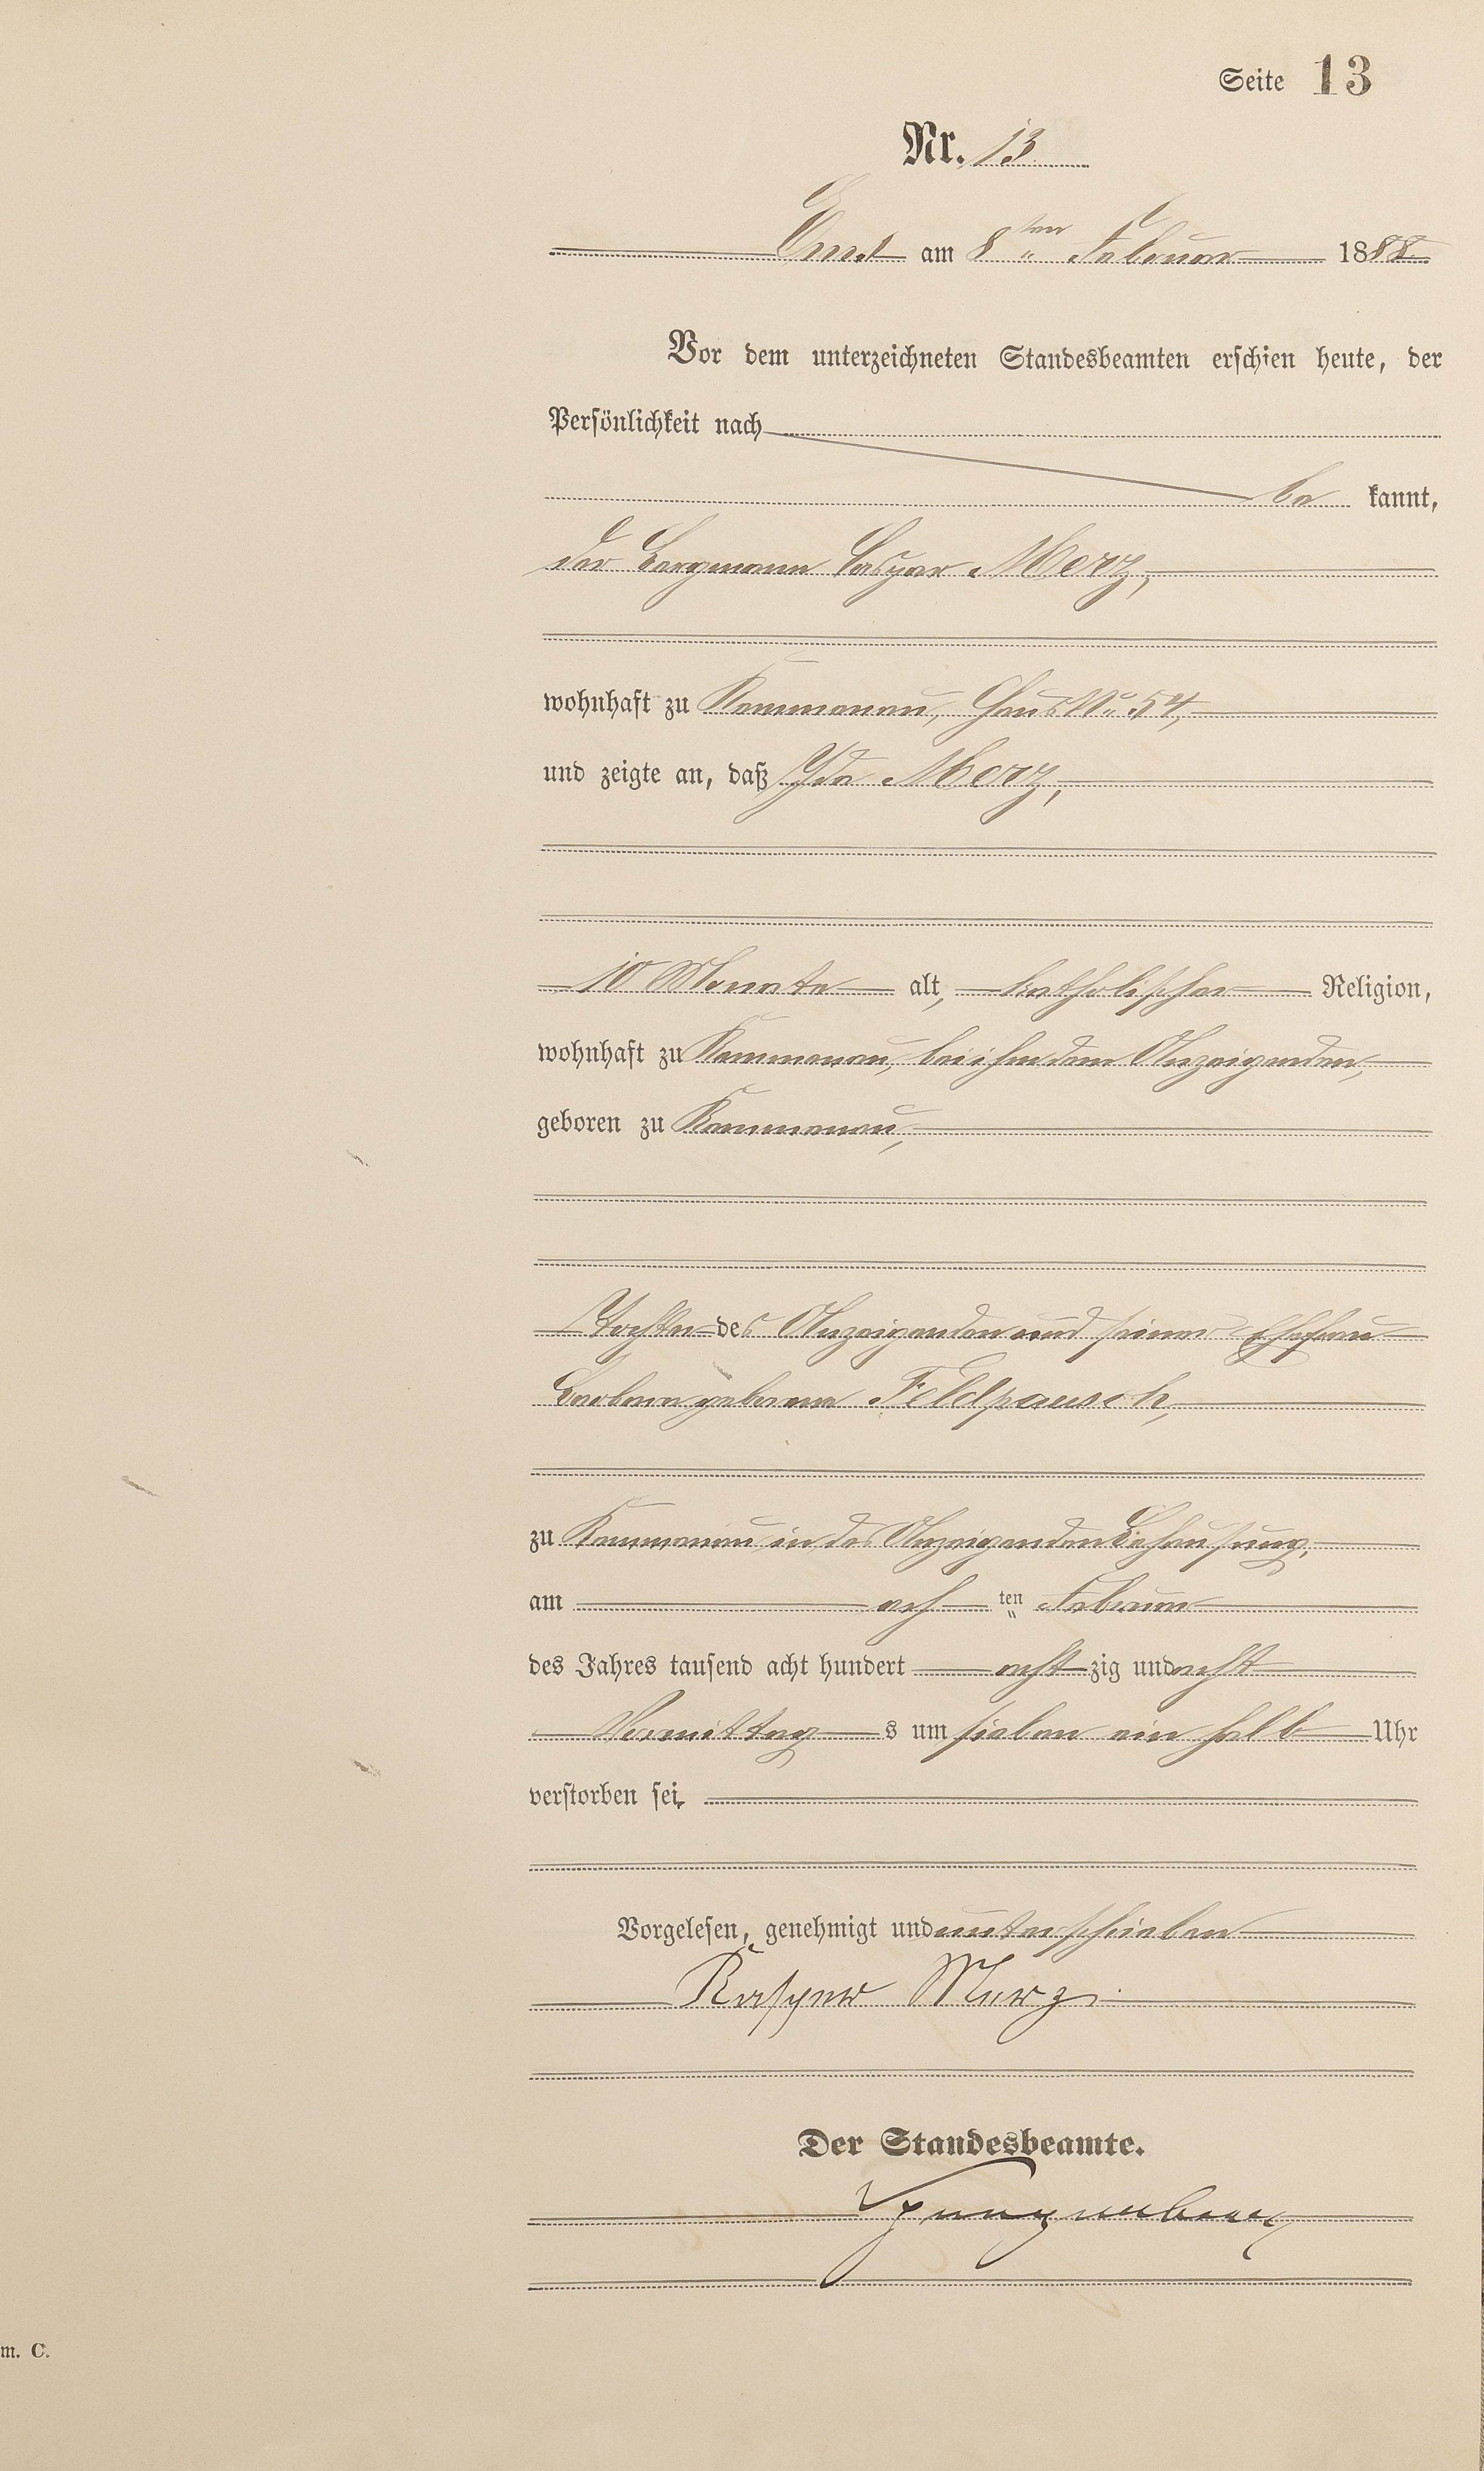 Seite 13
Nr. 13
Ems am 8ten Februar 1888
Vor dem unterzeichneten Standesbeamten erschien heute, der
Persönlichkeit nach
be kannt,
der Bergmann Caspar Merz,
wohnhaft zu Kemmenau, Haus No 54,
und zeigte an, daß Ida Merz,
10 Monate alt, katholischer Religion,
wohnhaft zu Kemmenau, bei ihm dem Anzeigenden,
geboren zu Kemmenau,
Tochter des Anzeigenden und seiner Ehefrau
Barbara geborene Feldpausch,
zu Kemmenau in des Anzeigenden Behausung,
am ach ten Februar
des Jahres tausend acht hundert acht zig und acht
Vormittag s um sieben ein halb Uhr
verstorben sei.
Vorgelesen, genehmigt und unterschrieben
Kasper Merz
Der Standesbeamte.
m. C.